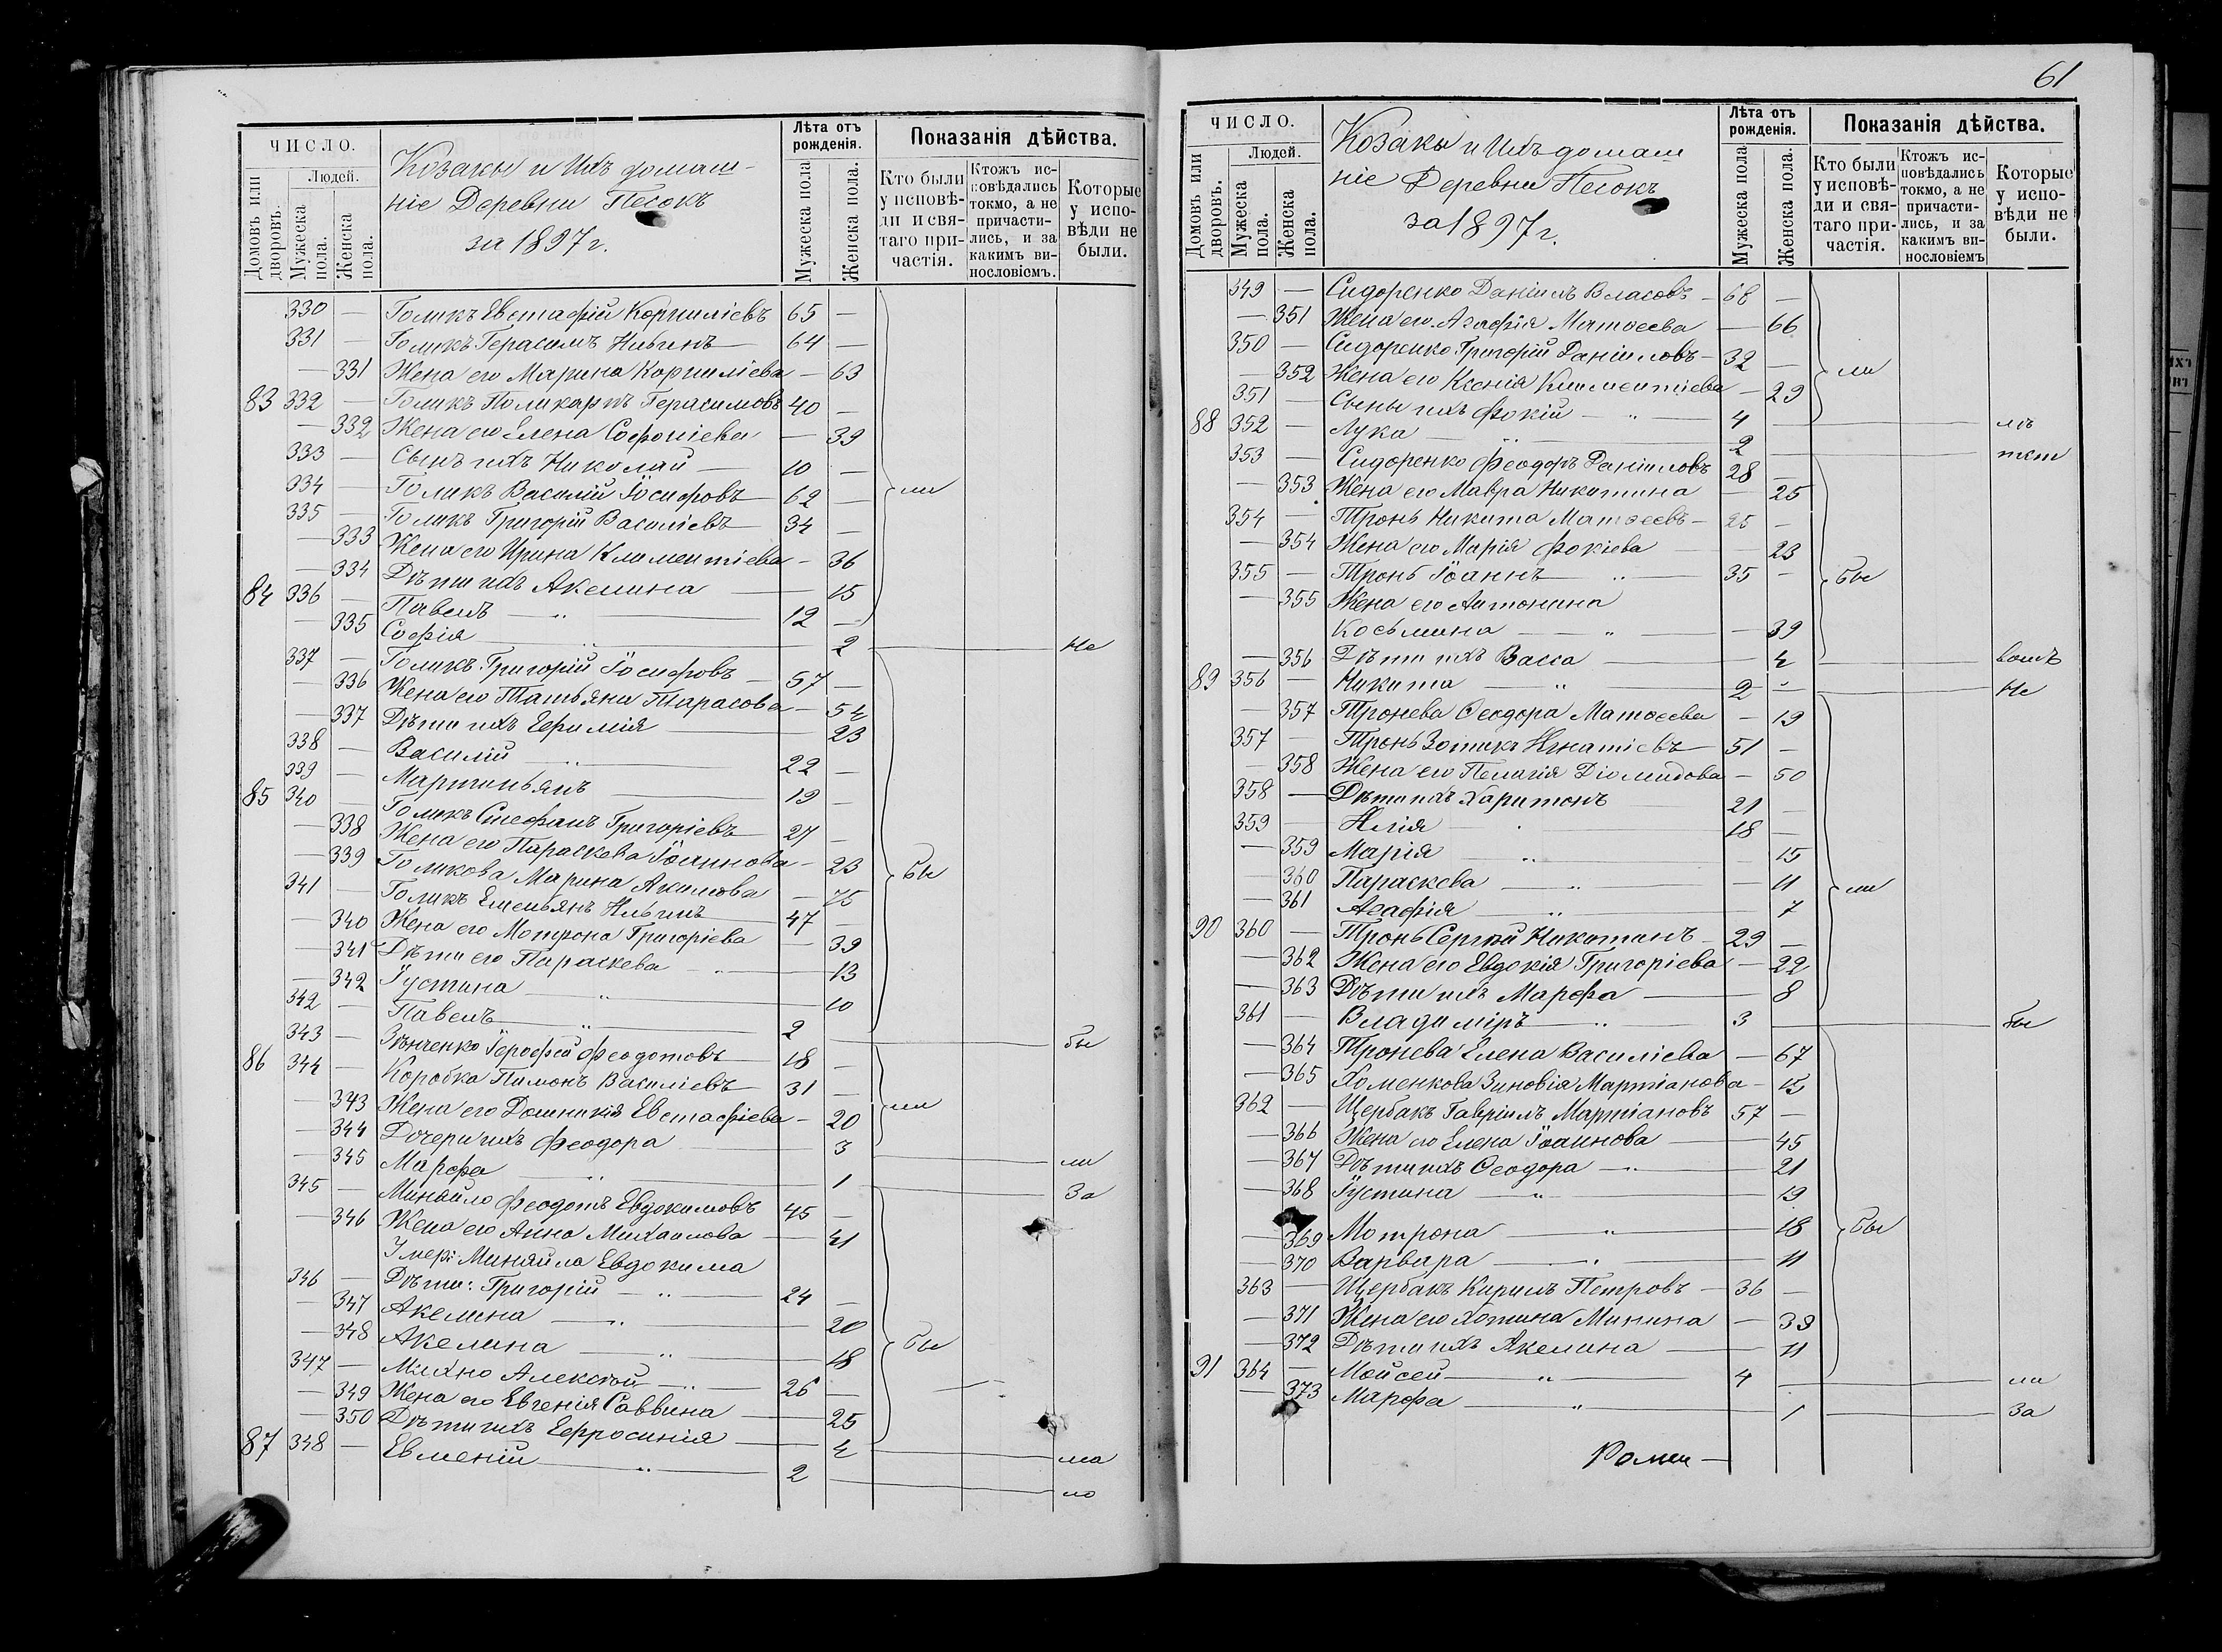 ЧИСЛО.
Домовъ или дворовъ.
Людей.
Мужеска пола.
Женска пола.
Козаки и Ихъ домаш-
ніе Деревни Песокъ
за 1897 г.
Лѣта отъ рожденія.
Мужеска пола
Женска пола.
Показанія дѣйства.
Кто были у исповѣ-ди и свя-таго при-частія.
Ктожъ ис-повѣдались токмо, а не причасти-лись, и за какимъ ви-нословіемъ.
Которые у испо-вѣди не были.
330 — Голикъ Евстафій Корниліевъ 65 —
331 — Голикъ Герасимъ Ильинъ 64 —
— 331 Жена его Марина Корниліева — 63
83 332 — Голикъ Поликарпъ Герасимовъ 40 —
— 332 Жена его Елена Софоніева — 39
333 — Сынъ ихъ Николай — 10 —
334 — Голикъ Василій Іосифовъ 62 — ли
335 — Голикъ Григорій Василіевъ 34 —
— 333 Жена его Ирина Климентіева — 36
— 334 Дѣти ихъ Акелина — 15
84 336 — Павелъ — " — 12 —
— 335 Софія — " — 2 — Не
337 — Голикъ Григорій Іосифовъ — 57 —
— 336 Жена его Татьяна Тарасова — 54
— 337 Дѣти ихъ Ефимія — 23
338 — Василій — " — 22 —
339 — Мартиньянъ — 19 —
85 340 — Голикъ Стефанъ Григоріевъ 27 —
— 338 Жена его Параскева Іоаннова — 23
— 339 Голикова Марина Акимова — 75 бы
341 — Голикъ Емельянъ Ильинъ 47 —
— 340 Жена его Мотрона Григоріева — 39
— 341 Дѣти его Параскева — " — 13
— 342 Іустина — " — 10
342 — Павелъ — " — 2 — бы
343 — Зѣнченко Іерофей Феодотовъ 18 —
86 344 — Коробка Пимонъ Василіевъ 31 —
— 343 Жена его Домникія Евстафіева — 20 ли
— 344 Дочери ихъ Феодора — 3 — ли
— 345 Марфа — " — 1 — За
345 — Минайло Феодотъ Евдокимовъ 45 —
— 346 Жена его Анна Михаилова — 41
Умер: Минайла Евдокима
346 — Дѣти: Григорій — " — 24 —
— 347 Акелина — " — 20
— 348 Акелина — " — 18 бы
347 — Михно Алексѣй — " — 26 —
— 349 Жена его Евгенія Саввина — 25
— 350 Дѣти ихъ Ефросинія — 4 — ма
87 348 — Евменій — " — 2 — ло
61
ЧИСЛО.
Домовъ или дворовъ.
Людей.
Мужеска пола.
Женска пола.
Козаки и Ихъ домаш
ніе Деревни Песокъ
за 1897 г.
Лѣта отъ рожденія.
Мужеска пола
Женска пола.
Показанія дѣйства.
Кто были у исповѣ-ди и свя-таго при-частія.
Ктожъ ис-повѣдались токмо, а не причасти-лись, и за какимъ ви-нословіемъ
Которые у испо-вѣди не были.
349 — Сидоренко Даніилъ Власовъ — 68 —
— 351 Жена его Агафія Матѳеева — 66
350 — Сидоренко Григорій Даніиловъ — 32 —
— 352 Жена его Ксенія Климентіева — 29 ли
351 — Сыны ихъ Фокій — " — 4 — лѣ
88 352 — Лука — " — 2 — тст
353 — Сидоренко Феодоръ Даніиловъ 28 —
— 353 Жена его Мавра Никитина — 25
354 — Тронь Никита Матѳеевъ — 25 —
— 354 Жена его Марія Фокіева — 23
355 — Тронь Іоаннъ — " — 35 — бы
— 355 Жена его Антонина
Косьмина — " — 39
— 356 Дѣти ихъ Васса — 4
89 356 — Никита — " — 2 — Не
— 357 Тронева Ѳеодора Матѳеева — 19
357 — Тронь Зотикъ Игнатіевъ — 51 —
— 358 Жена его Пелагія Діомидова — 50
358 — Дѣти ихъ Харитонъ 21 —
359 — Илія — 18 —
— 359 Марія — " — 15
— 360 Параскева — " — 11
— 361 Агафія — " — 7 ли
90 360 — Тронь Сергій Никитинъ — 29 —
— 362 Жена его Евдокія Григоріева — 22
— 363 Дѣти ихъ Марфа — 8
361 — Владиміръ — " — 3 — бы
— 364 Тронева Елена Василіева — 67
— 365 Хоменкова Зиновія Мартіанова — 15
362 — Щербакъ Гавріилъ Мартіановъ 57 —
— 366 Жена его Елена Іоаннова — 45
— 367 Дѣти ихъ Ѳеодора — " — 21
— 368 Іустина — " — 19
— 369 Мотрона — " — 18 бы
— 370 Варвара — " — 11
363 — Щербакъ Кирилъ Петровъ — 36 —
— 371 Жена его Хотина Минина — 39
— 372 Дѣти ихъ Акелина — 11
91 364 — Мойсей — " — 4 — ли
— 373 Марфа — " — 1 — За